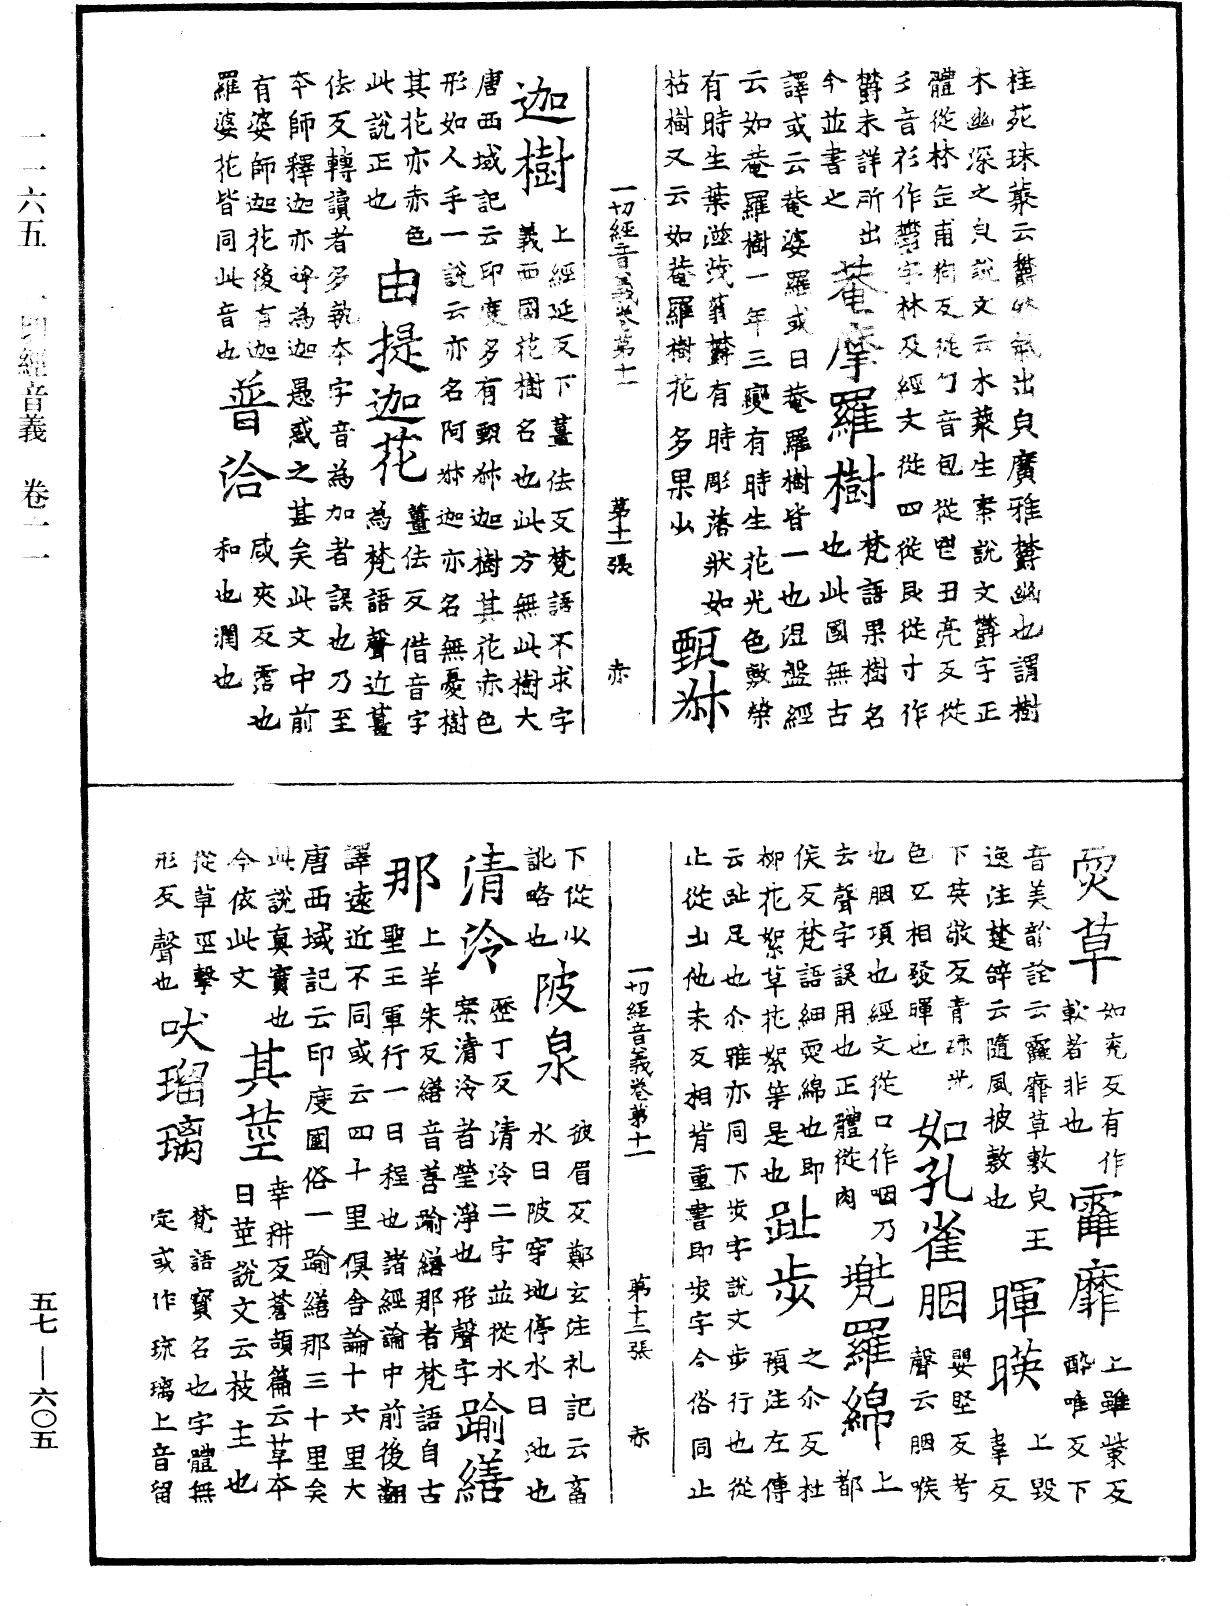 一一六五　一切經音義　卷一一
桂苑珠藂云欝然氣出皃廣雅欝幽也謂樹
木幽深之皃說文云木藂生者說文欝字正
體從林缶甫狗反從勹音包從鬯丑亮反從
彡音衫作欝字林及經文從四從艮從寸作
欝未詳所出　菴摩羅樹　梵語果樹名
今並書之　也此國無古
譯或云菴婆羅或曰菴羅樹皆一也涅盤經
云如菴羅樹一年三變有時生花光色敷榮
有時生葉滋茂蓊欝有時彫落狀如
枯樹又云如菴羅樹花多果少　甄䊾
一切經音義卷第十一　第十一張　赤
迦樹　上經延反下薑佉反梵語不求字
義西國花樹名也此方無此樹大
唐西域記云印度多有甄䊾迦樹其花赤色
形如人手一說云亦名阿䊾迦亦名無憂樹
其花亦赤色　由提迦花　薑佉反借音字
此說正也　為梵語聲近薑
佉反轉讀者多執本字音為加者誤也乃至
本師釋迦亦呼為迦愚惑之甚矣此文中前
有婆師迦花後有迦　普洽　咸夾反霑也
羅婆花皆同此音也　和也潤也
耎草　如兖反有作　靃靡　上雖觜反
軟者非也　酔唯反下
音美韻詮云靃靡草敷皃王
逸注楚辝云隨風披敷也　暉暎　上毀韋反
下英敬反青珠光
色互相發暉也　如孔雀胭　嬰堅反考
聲云胭喉
也胭項也經文從口作咽乃
去聲字誤用也正體從肉　兠羅綿　上都
侯反梵語細耎綿也即
柳花絮草花絮等是也　趾步　之尒反杜
預注左傳
云趾足也尒雅亦同下步字說文步行也從
止從𣥂他末反相背重書即步字今俗同止
一切經音義卷第十一　第十二張　赤
下從少
訛略也　陂泉　彼眉反鄭玄注礼記云畜
水曰陂穿地停水曰池也
清泠　歷丁反　清泠二字並從水
案清泠者瑩淨也形聲字　踰繕
那　上羊朱反繕音善踰繕那者梵語自古
聖王軍行一日程也諸經論中前後翻
譯遠近不同或云四十里俱舍論十六里大
唐西域記云印度國俗一踰繕那三十里矣
此說真實也　其莖　幸耕反蒼頡篇云草本
今依此文　曰莖說文云枝主也
從草巠聲
形反聲也　吠瑠璃　梵語寳名也字體無
定或作琉璃上音留
五七—六〇五